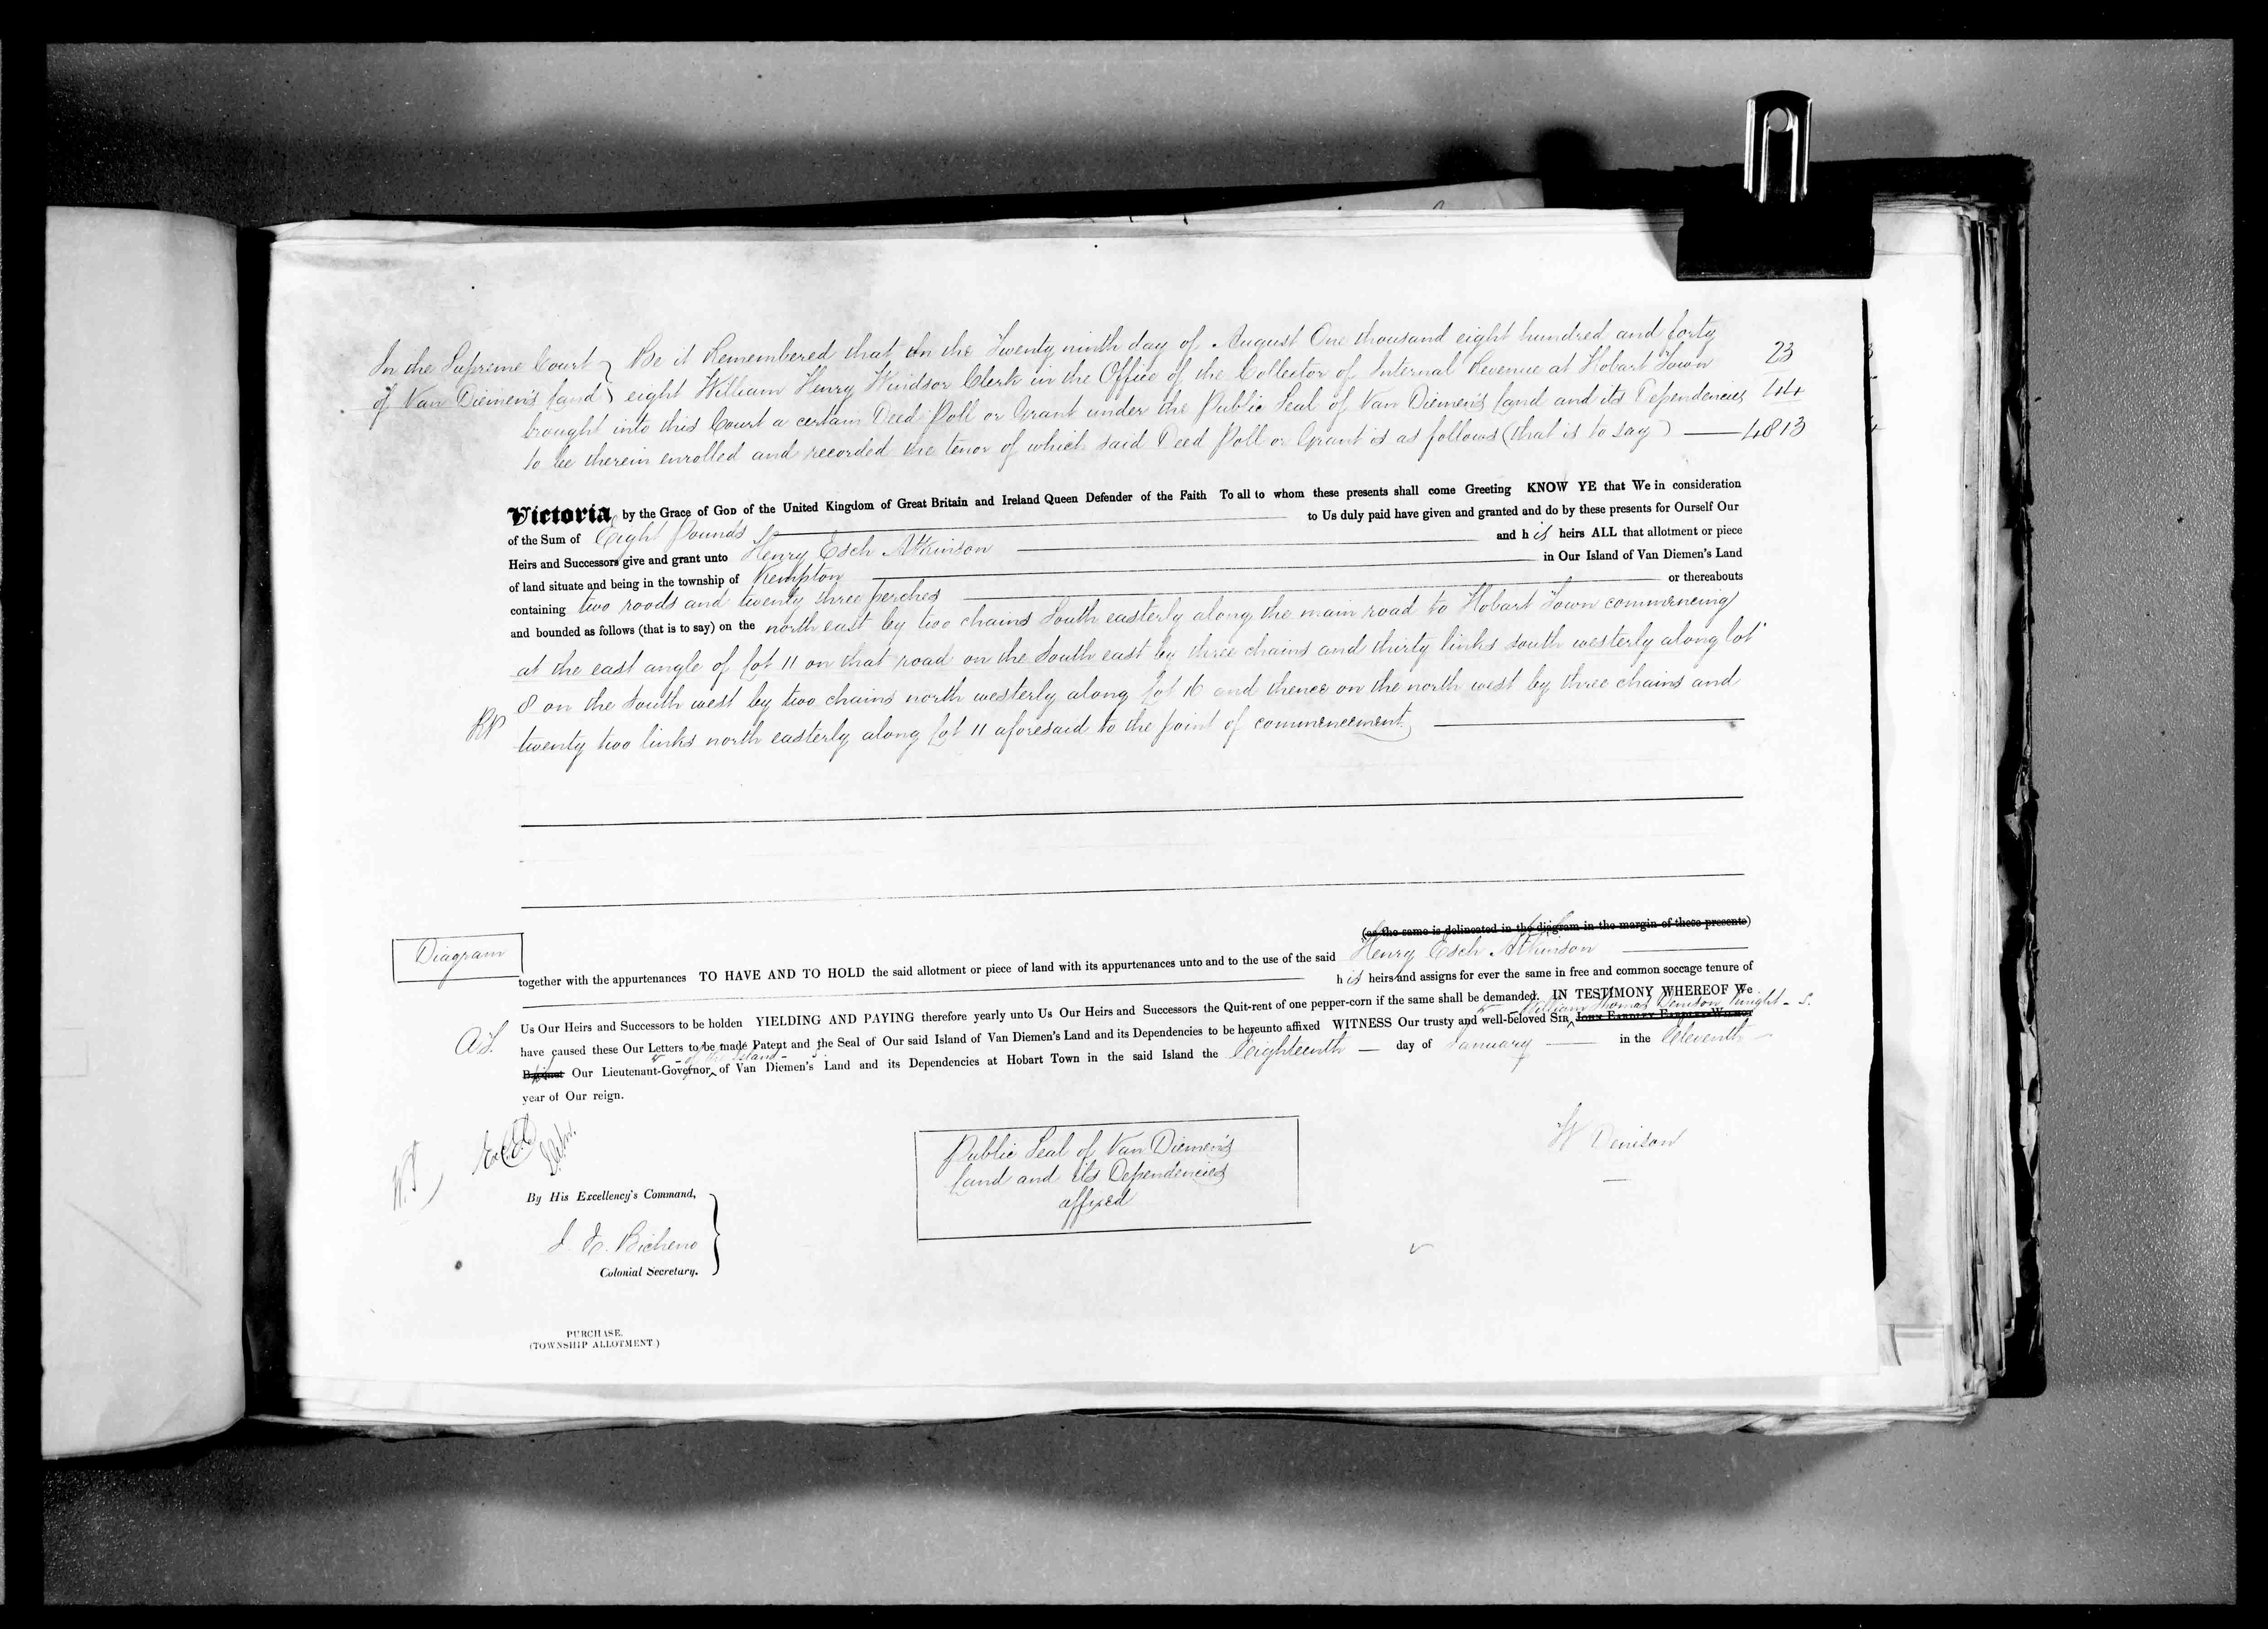 In the Supreme Court } Be it Remembered that on the Twenty ninth day of August One thousand eight hundred and forty
of Van Diemen's Land } eight William Henry Windsor Clerk in the Office of the Collector of Internal Revenue at Hobart Town
brought into this Court a certain Deed Poll or Grant under the Public Seal of Van Diemen's Land and its Dependencies
to be therein enrolled and recorded the tenor of which said Deed Poll or Grant is as follows (that is to say)
23
44
4813
Victoria, by the Grace of God of the United Kingdom of Great Britain and Ireland Queen Defender of the Faith To all to whom these presents shall come Greeting KNOW YE that We in consideration
of the Sum of Eight Pounds to Us duly paid have given and granted and do by these presents for Ourself Our
Heirs and Successors give and grant unto Henry Esch Atkinson and his heirs ALL that allotment or piece
of land situate and being in the township of Kempton in Our Island of Van Diemen's Land
containing two roods and twenty three perches or thereabouts
and bounded as follows (that is to say) on the north east by two chains South easterly along the main road to Hobart Town commencing
at the east angle of Lot 11 on that road on the South east by three chains and thirty links south westerly along lot
8 on the South west by two chains north westerly along Lot 16 and thence on the north west by three chains and
twenty two links north easterly along Lot 11 aforesaid to the point of commencement
(as the same is delineated in the diagram in the margin of these presents)
Diagram
together with the appurtenances TO HAVE AND TO HOLD the said allotment or piece of land with its appurtenances unto and to the use of the said Henry Esch Atkinson
his heirs and assigns for ever the same in free and common soccage tenure of
Us Our Heirs and Successors to be holden YIELDING AND PAYING therefore yearly unto Us Our Heirs and Successors the Quit-rent of one pepper-corn if the same shall be demanded. IN TESTIMONY WHEREOF We
William Thomas Denison Knight
have caused these Our Letters to be made Patent and the Seal of Our said Island of Van Diemen's Land and its Dependencies to be hereunto affixed WITNESS Our trusty and well-beloved Sir John Eardley Eardley Wilmot
of the Island
Baronet Our Lieutenant-Governor of Van Diemen's Land and its Dependencies at Hobart Town in the said Island the Eighteenth day of January in the Eleventh
year of Our reign.
W Denison
Public Seal of Van Diemen's
Land and its Dependencies
affixed
By His Excellency's Command,
J E. Bicheno
Colonial Secretary.
PURCHASE.
(TOWNSHIP ALLOTMENT.)